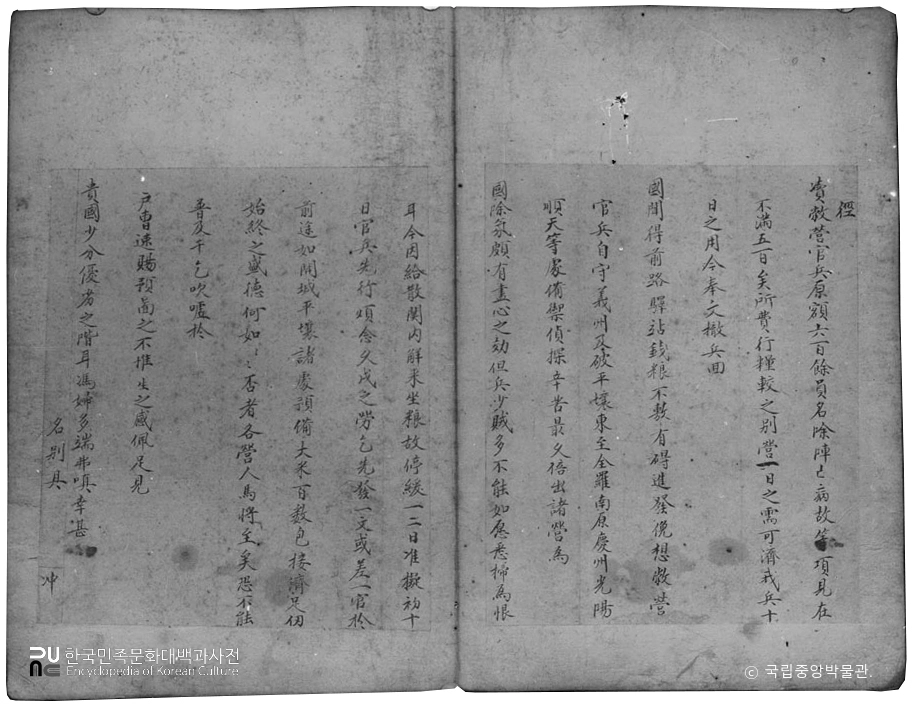 徑
賣敝營官兵原額六百餘員名除陣亡病故等項見在
不滿五百矣所費行糧較之別營一日之需可濟我兵十
日之用今奉文撤兵回
國聞得前路驛站錢粮不敷有碍進發俛想敝營
官兵自守義州及破平壤東至全羅南原慶州光陽
順天等處備禦偵探辛苦最久倍出諸營爲
國除氛頗有盡心之効但兵少賊多不能如愿悉掃爲恨
耳今因給散関內觧来坐粮故停緩一二日准擬初十
日官兵先行煩念久戍之勞乞先發一文或差一官於
前途如開城平壤諸處預備大米百数包接濟足仞
始終之盛德何如〻〻否者各營人馬將至矣恐不能
普及千乞吹噓於
戶曹速賜預啚之不惟生之感佩足見
貴國少分優劣之階耳馮婦多端弗嗔幸甚
名別具
冲
한국민족문화대백과사전
Encyclopedia of Korean Culture
ⓒ 국립중앙박물관.